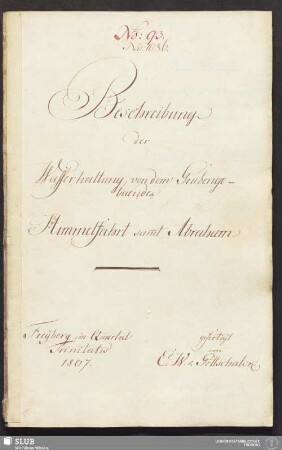 No: 93.
No. 1036.
Beschreibung
der
Wasserhaltung von dem Grubenge-
bäude
Himmelfahrt samt Abraham
Freyberg im Quartal
Trinitatis
1807.
gefertigt
von
E. W. v. Gottschalck
SLUB